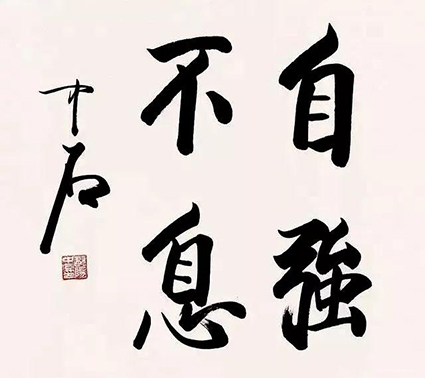 自強
不息
中石